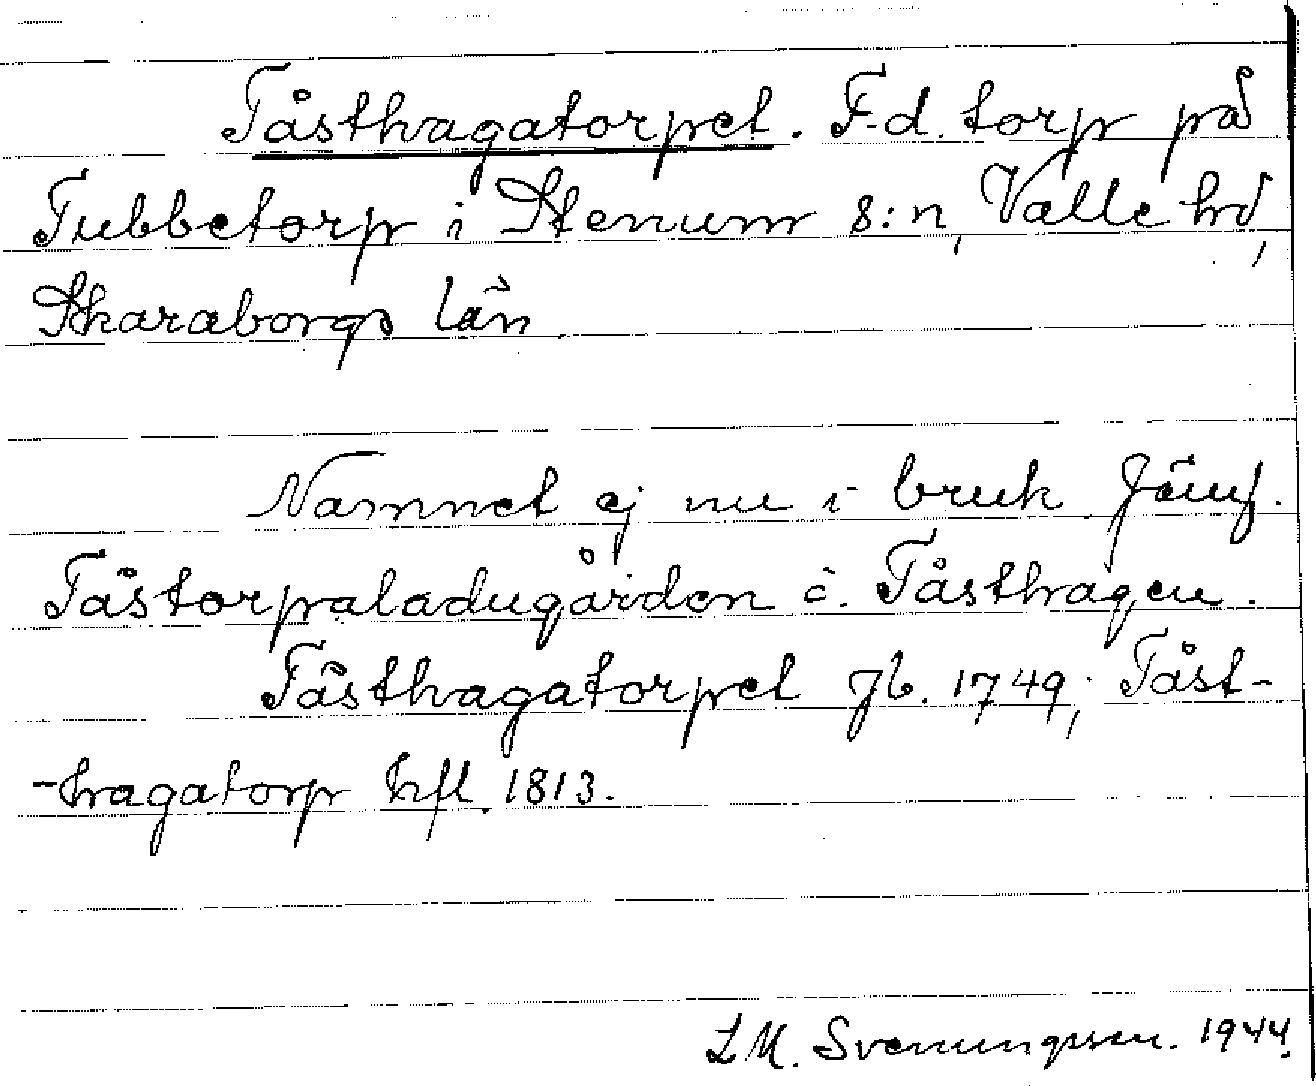 Tåsthagatorpet. F.d. torp på
Tubbetorp i Stenum s:n, Valle hd,
Skaraborgs län
Namnet ej nu i bruk. Jämf.
Tåstorpaladugården o. Tåsthagen.
Tåsthagatorpet jb. 1749; Tåst-
-hagatorp hfl. 1813.
L M. Svenungsson. 1944.